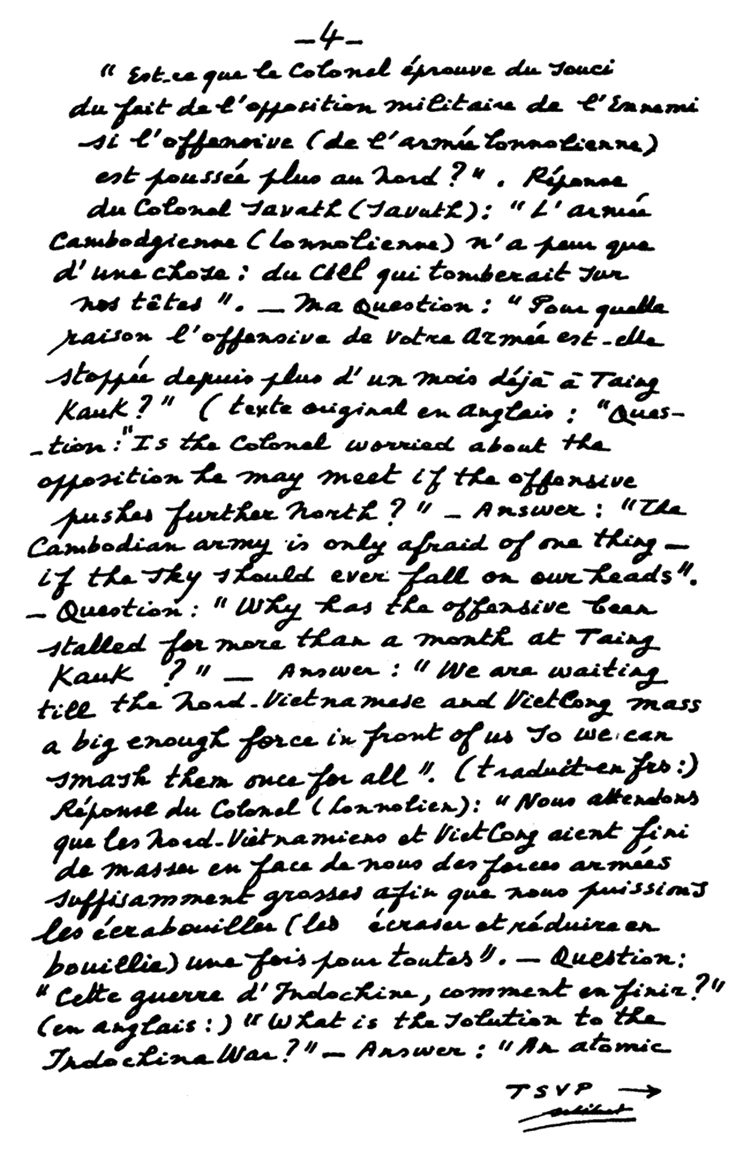 -4-
" Est-ce que le Colonel éprouve du souci
du fait de l'opposition militaire de l'Ennemi
si l'offensive (de l'armée lonnolienne)
est poussée plus au Nord ? ". Réponse
du Colonel Savath (Savuth) : " L'armée
Cambodgienne (lonnolienne) n'a peur que
d'une chose : du CIEL qui tomberait sur
nos têtes ". — Ma Question : " Pour quelle
raison l'offensive de Votre Armée est-elle
stoppée depuis plus d'un mois déjà à Taing
Kauk ? " ( texte original en anglais : "Ques-
-tion : "Is the Colonel worried about the
opposition he may meet if the offensive
pushes further North ? " — Answer : "The
Cambodian army is only afraid of one thing —
if the sky should ever fall on our heads".
— Question : " Why has the offensive been
stalled for more than a month at Taing
Kauk ? " — Answer : " We are waiting
till the Nord-Vietnamese and VietCong mass
a big enough force in front of us so we can
smash them once for all ". (traduit en frs :)
Réponse du Colonel (Lonnolien) : " Nous attendons
que les Nord-Vietnamiens et VietCong aient fini
de masser en face de nous des forces armées
suffisamment grosses afin que nous puissions
les écrabouiller (les écraser et réduire en
bouillie) une fois pour toutes ". — Question :
" Cette guerre d'Indochine, comment en finir ? "
(en anglais :) " What is the solution to the
Indochina War ? " — Answer : " An atomic
TSVP →